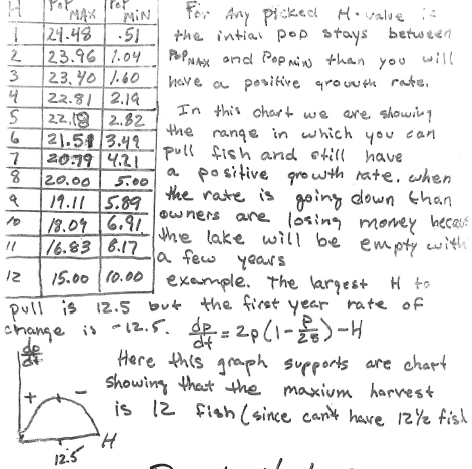 H | Pop MAX | Pop MIN
1 | 24.48 | .51
2 | 23.96 | 1.04
3 | 23.40 | 1.60
4 | 22.81 | 2.19
5 | 22.18 | 2.82
6 | 21.51 | 3.49
7 | 20.79 | 4.21
8 | 20.00 | 5.00
9 | 19.11 | 5.89
10 | 18.09 | 6.91
11 | 16.83 | 8.17
12 | 15.00 | 10.00
For Any picked H-value if
the intial pop stays between
Pop MAX and Pop MIN than you will
have a positive growth rate.
In this chart we are showing
the range in which you can
pull fish and still have
a positive growth rate. when
the rate is going down than
owners are losing money becaus
the lake will be empty with
a few years
example. The largest H to
pull is 12.5 but the first year rate of
change is -12.5. dp/dt = 2p(1-p/25)-H
Here this graph supports are chart
showing that the maxium harvest
is 12 fish (since can't have 12½ fish
dp/dt
+ -
H
12.5